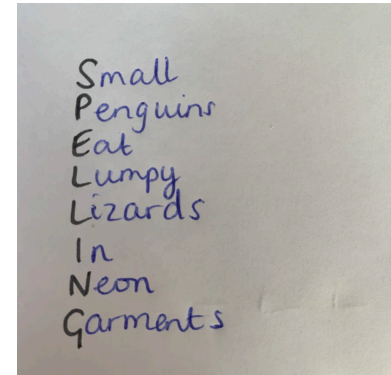 Small
Penguins
Eat
Lumpy
Lizards
In
Neon
Garments